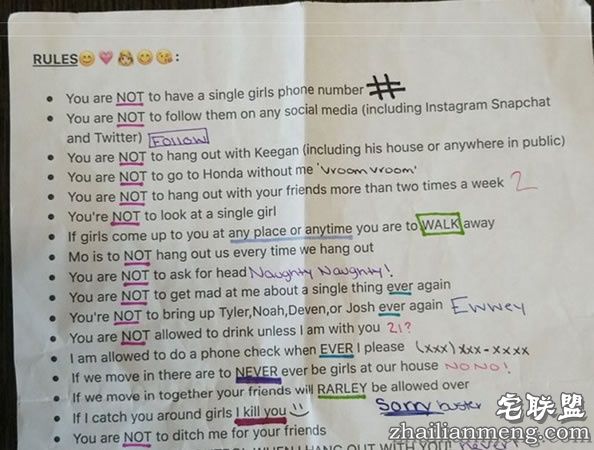 RULES😊💗👸😋😘:
You are NOT to have a single girls phone number #
You are NOT to follow them on any social media (including Instagram Snapchat
and Twitter) FOLLOW
You are NOT to hang out with Keegan (including his house or anywhere in public)
You are NOT to go to Honda without me 'vroom vroom'
You are NOT to hang out with your friends more than two times a week 2
You're NOT to look at a single girl
If girls come up to you at any place or anytime you are to WALK away
Mo is to NOT hang out us every time we hang out
You are NOT to ask for head Naughty Naughty!
You are NOT to get mad at me about a single thing ever again
You're NOT to bring up Tyler,Noah,Deven,or Josh ever again Ewwey
You are NOT allowed to drink unless I am with you 21?
I am allowed to do a phone check when EVER I please (xxx)xxx-xxxx
If we move in there are to NEVER ever be girls at our house NO NO!
If we move in together your friends will RARLEY be allowed over
If I catch you around girls I kill you :) Sorry buster
You are NOT to ditch me for your friends
WHEN I HANG OUT WITH YOU!
宅联盟
zhailianmeng.com